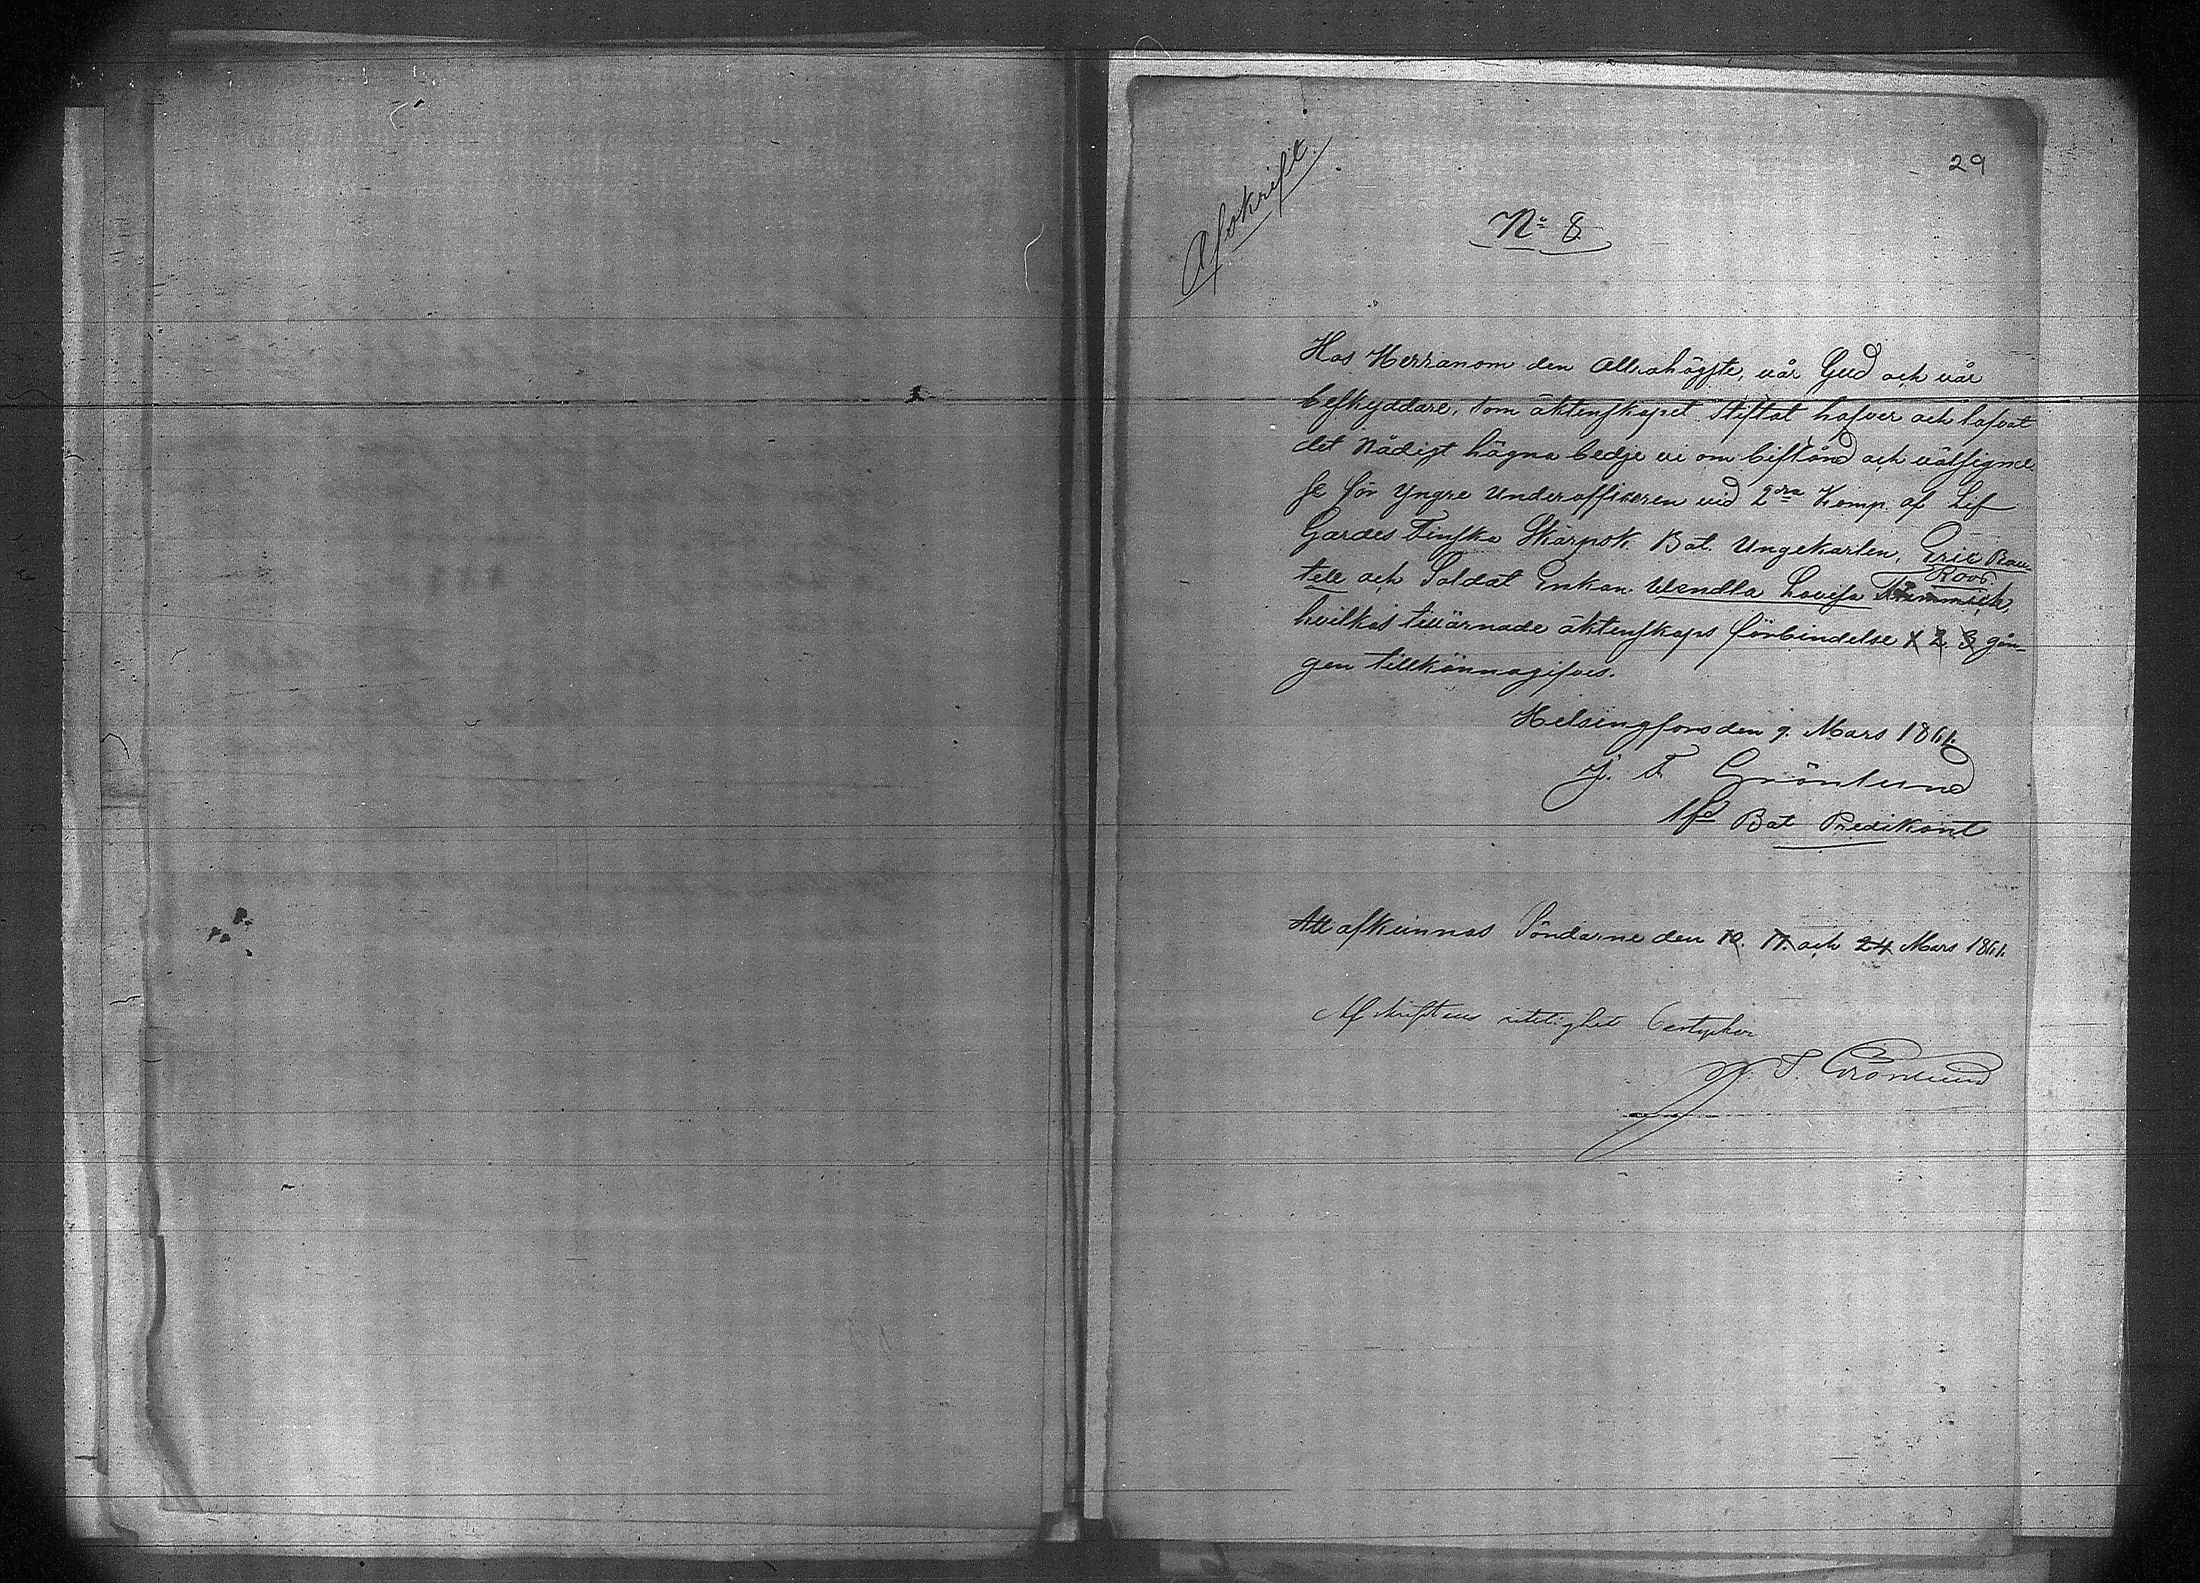 29
Afskrift.
No 8.
Hos Herranom den Allrahögste, vår Gud och vår
beskyddare, som äktenskapet stiftat hafver och lofvat
det Nådigt hägna bedje vi om bistånd och välsignel
se för Yngre Underofficeren vid 2dra Komp. af Lif
Gardes Finska Skarpsk. Bat. Ungekarlen, Eric Rau
Roos.
tell och Soldat Enkan Wendla Lovisa
hvilkas tillärnade äktenskaps förbindelse 1 2 3 gån-
gen tillkännagifves.
Helsingfors den 9. Mars 1861.
J. F. Grönlund
Bat Predikant
Att afkunnas Söndarne den 10. 17. och 24 Mars 1861.
Afskriftens riktighet bestyrker
J. F. Grönlund